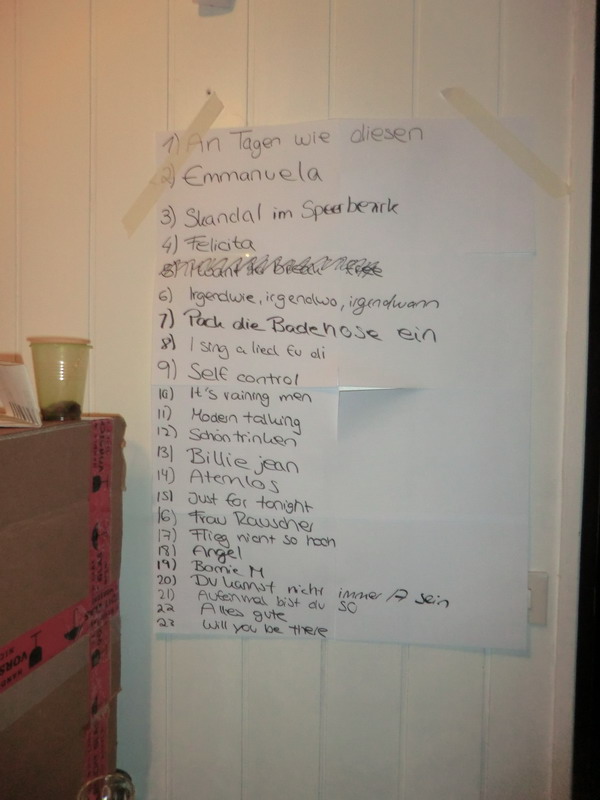 1) An Tagen wie diesen
2) Emmanuela
3) Skandal im Sperrbezirk
4) Felicita
5)
6) Irgendwie, irgendwo, irgendwann
7) Pack die Badehose ein
8) I sing a liad für di
9) Self control
10) It's raining men
11) Modern talking
12) Schöntrinken
13) Billie jean
14) Atemlos
15) Just for tonight
16) Frau Rauscher
17) Flieg nicht so hoch
18) Angel
19) Bonnie M
20) Du kannst nicht immer 17 sein
21) Aufeinmal bist du so
22 Alles gute
23 Will you be there
VORS